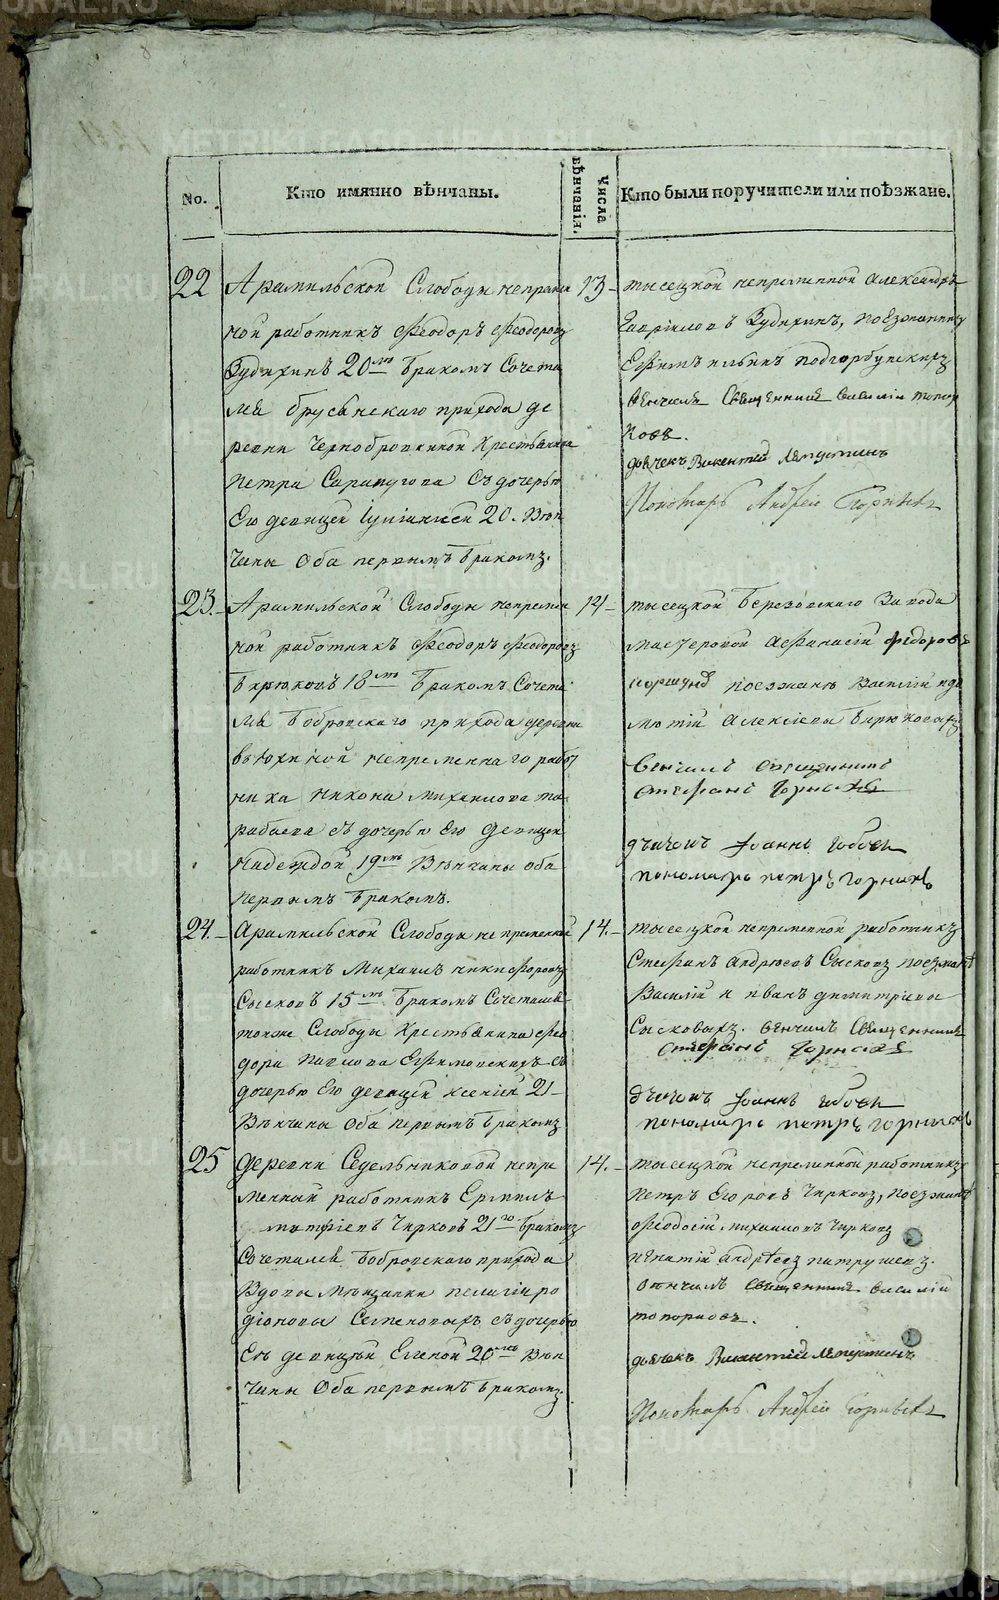 No.
Кто имянно вѣнчаны.
Числа вѣнчанія.
Кто были поручители или поѣзжане.
22
Арамильской Слободы непремѣн
ной работникъ Феодоръ Феодоровъ
20 лѣ бракомъ Сочета
лся брусянскаго прихода де
ревни Чернобровкиной Крестьянина
Петра Сарапулова Съ дочерью
Его девицей 20. Вѣн
чаны Оба первымъ бракомъ.
13
тысецкой непременной Александръ
Гаврииловъ Зудихинъ, поезжанину
Ефимъ Ильинъ подгорбунскихъ
венчалъ Священникъ Василіи топор
ковъ.
дьячекъ Викентій Ляпустинъ
Пономарь Андрей Горныхъ
23.
Арамильской Слободы непремен
ной работникъ Феодоръ Феодоровъ
Бирюковъ 18 лѣ бракомъ Сочета
лся Бобровскаго прихода деревни
вьюхиной непременнаго работ
ника Никона Михаилова та
рабаева съ дочерью Его девицей
Надеждой 19 лѣ Вѣнчаны оба
первымъ бракомъ.
14
тысецкой березовскаго Завода
мастеровой Афанасій Федоровъ
поезжана Василій и да
Алексіевы Бирюковы
Венчалъ священникъ
Стефанъ Горныхъ
дьячекъ Іоаннъ
пономарь петръ горныхъ
24.
Арамильской Слободы непременной
работникъ Михаилъ никифоровъ
Сысковъ 15 лѣ бракомъ Сочетался
тояже Слободы Крестьянина Фео
дора Павлова Ефимовскихъ съ
дочерью Его девицей Ксеніей 21
Вѣнчаны Оба первымъ бракомъ
14.
тысецкой непременной работникъ
Стефанъ Андреевъ Сысковъ поезжане
Василій и иванъ димитріевы
Сысковыхъ. венчалъ Священникъ
Стефанъ Горныхъ
дьячекъ Іоаннъ
пономарь петръ горныхъ
25
деревни Седельниковой непре
менный работникъ Ермилъ
матфіевъ Чирковъ 21 го бракомъ
Сочетался Бобровскаго прихода
Вдовы Мещанки пелагіи ро
діоновы Семеновыхъ съ дочерью
Ея девицѣй Еленой 20 лѣ Вѣн
чаны Оба первымъ бракомъ
14.
тысецкой непременной работникъ
Петръ Егоровъ Чирковъ, поезжане
Феодосій михаиловъ Чирковъ
игнатій Андреевъ патрушевъ.
венчалъ Священникъ Василій
топорковъ.
дьячекъ Викентій Ляпустинъ
Пономарь Андрей Горныхъ
METRIKI.GASO-URAL.RU